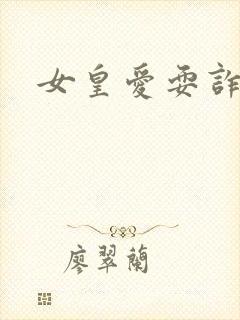 女皇愛耍詐
廖翠蘭